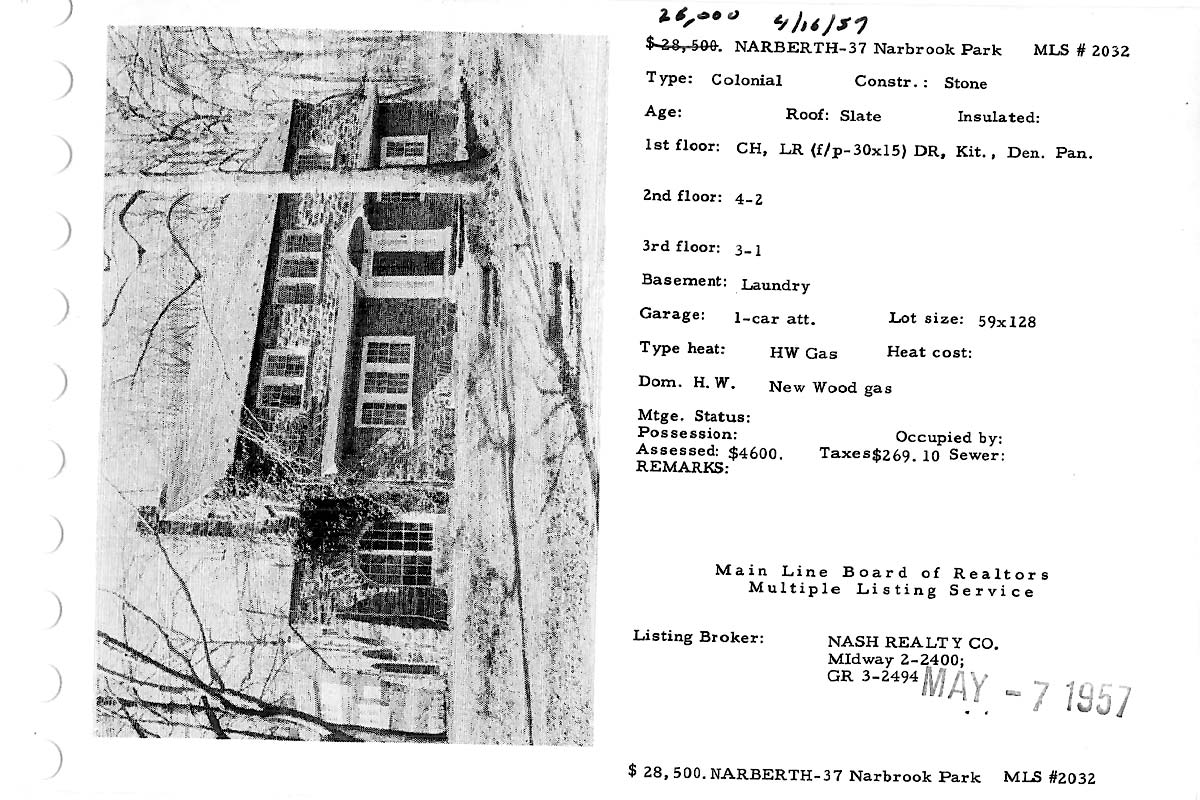 26,000 4/16/57
$ 28,500. NARBERTH-37 Narbrook Park MLS # 2032
Type: Colonial Constr.: Stone
Age: Roof: Slate Insulated:
1st floor: CH, LR (f/p-30x15) DR, Kit., Den. Pan.
2nd floor: 4-2
3rd floor: 3-1
Basement: Laundry
Garage: 1-car att. Lot size: 59x128
Type heat: HW Gas Heat cost:
Dom. H. W. New Wood gas
Mtge. Status:
Possession: Occupied by:
Assessed: $4600. Taxes$269.10 Sewer:
REMARKS:
Main Line Board of Realtors
Multiple Listing Service
Listing Broker: NASH REALTY CO.
MIdway 2-2400;
GR 3-2494
MAY -7 1957
$ 28,500. NARBERTH-37 Narbrook Park MLS #2032